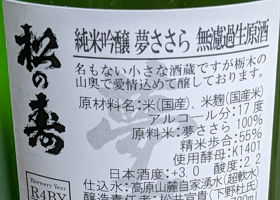 松の寿
純米吟醸 夢ささら 無濾過生原酒
名もない小さな酒蔵ですが栃木の
山奥で愛情込めて醸しております。
原材料名:米(国産)、米麹(国産米)
アルコール分:17度
原料米:夢ささら 100%
精米歩合:55%
使用酵母:K1401
日本酒度:+3.0 酸度:2.2
仕込水:高原山麓自家湧水(超軟水)
醸造責任者:松井宣貴(下野杜氏)
Brewery Year
R4BY